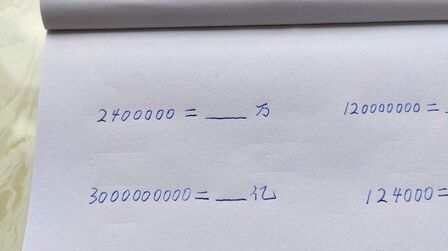 2400000 = ___ 万 120000000 =
3000000000 = ___ 亿 124000 =